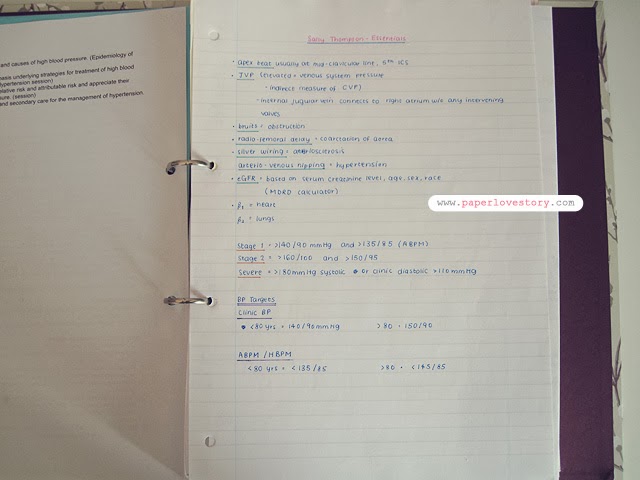 and causes of high blood pressure. (Epidemiology of
basis underlying strategies for treatment of high blood
hypertension session)
relative risk and attributable risk and appreciate their
sure. (session)
and secondary care for the management of hypertension.
Sally Thompson - Essentials
• apex beat usually at mid-clavicular line, 5th ICS
• JVP (elevated = venous system pressure
• indirect measure of CVP)
• internal jugular vein connects to right atrium w/o any intervening
valves
• bruits = obstruction
• radio-femoral delay = coarctation of aorta
• silver wiring = arteriosclerosis
arterio-venous nipping = hypertension
• eGFR = based on serum creatinine level, age, sex, race
(MDRD calculator)
• β₁ = heart
β₂ = lungs
www.paperlovestory.com
Stage 1 = >140/90 mmHg and >135/85 (ABPM)
Stage 2 = >160/100 and >150/95
Severe = >180mmHg systolic or clinic diastolic >110mmHg
BP Targets
Clinic BP
• <80 yrs = 140/90mmHg >80 = 150/90
ABPM / HBPM
<80 yrs = <135/85 >80 = <145/85